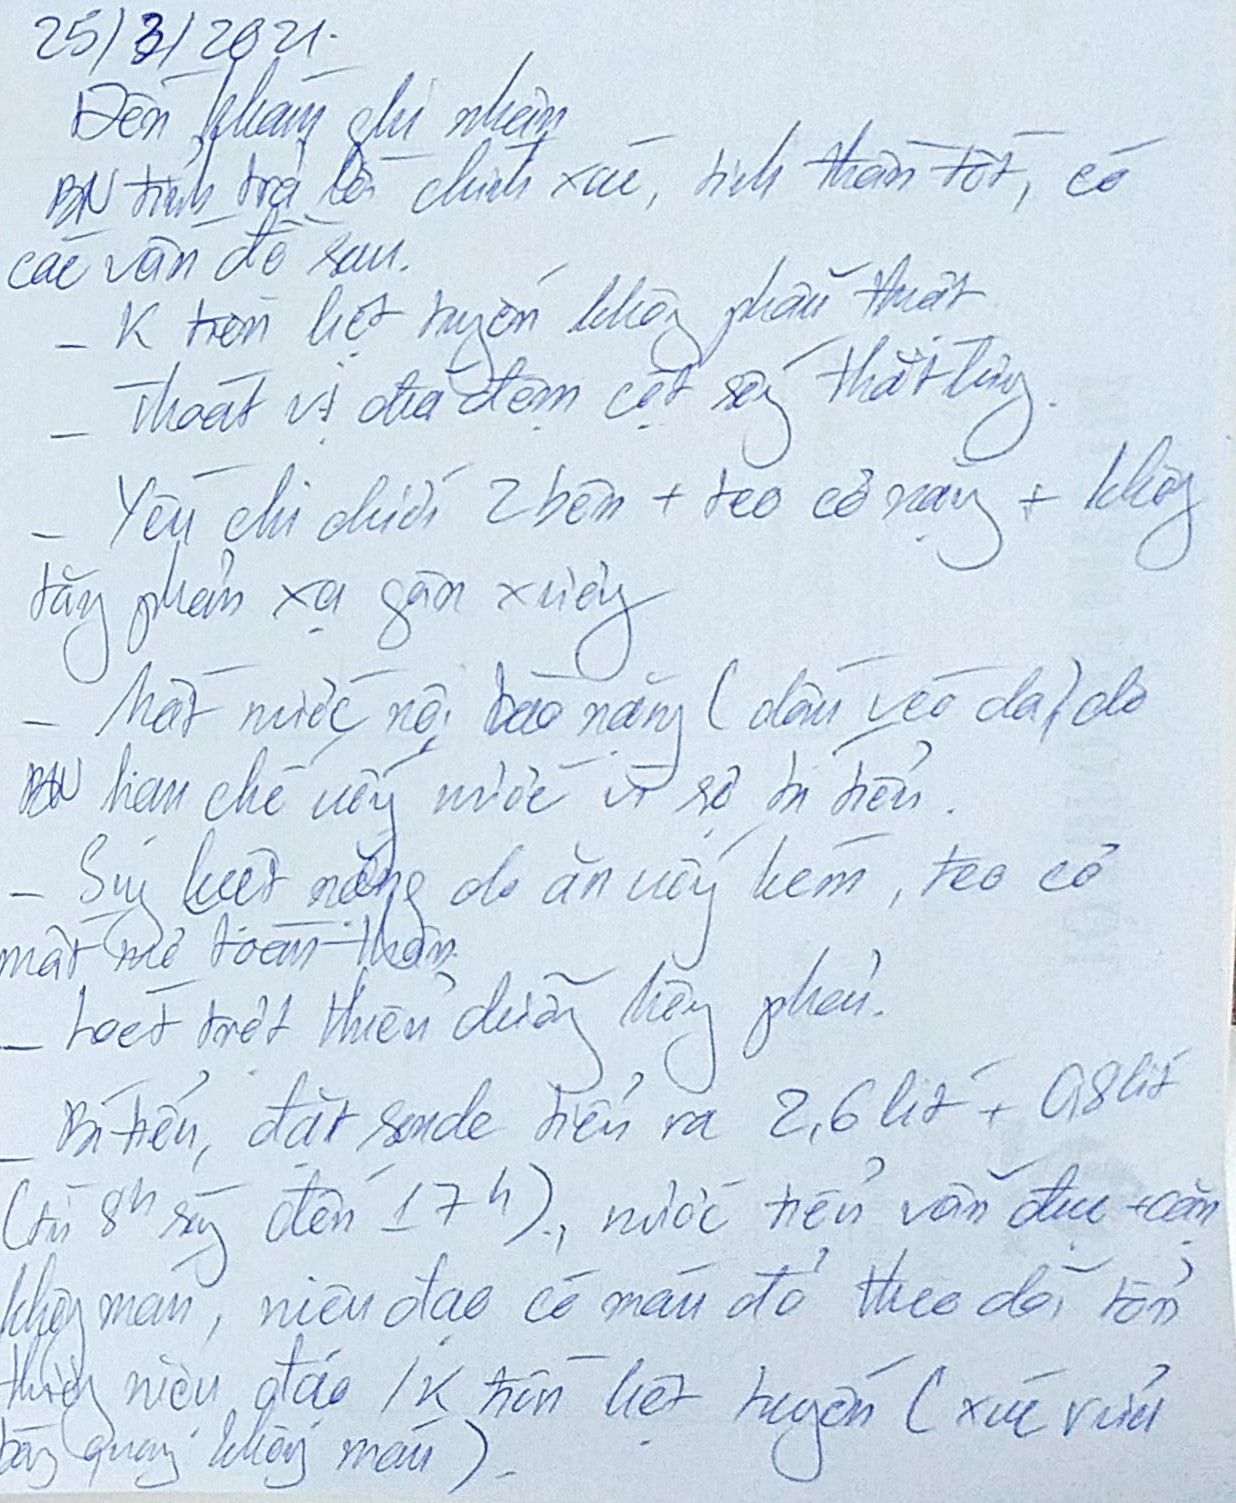 25/3/2021.
Đến khám ghi nhận
BN tỉnh trả lời chính xác, tinh thần tốt, có
các vấn đề sau.
- K tiền liệt tuyến không phẫu thuật
- Thoát vị đĩa đệm cột sống thắt lưng.
- Yếu chi dưới 2 bên + teo cơ nặng + không
tăng phản xạ gân xương
- Mất nước nội bào nặng (dấu véo da) do
BN hạn chế uống nước vì sợ bí tiểu.
- Suy kiệt nặng do ăn uống kém, teo cơ
mất mỡ toàn thân.
- Loét trợt thiểu dưỡng hông phải.
- Bí tiểu, đặt sonde tiểu ra 2,6 lít + 0,8 lít
(từ 8h sáng đến 17h)., nước tiểu vẫn đục + cặn
không máu, niệu đạo có máu đỏ theo dõi tổn
thương niệu đạo / K tiền liệt tuyến (xúc rửa
bàng quang không máu).